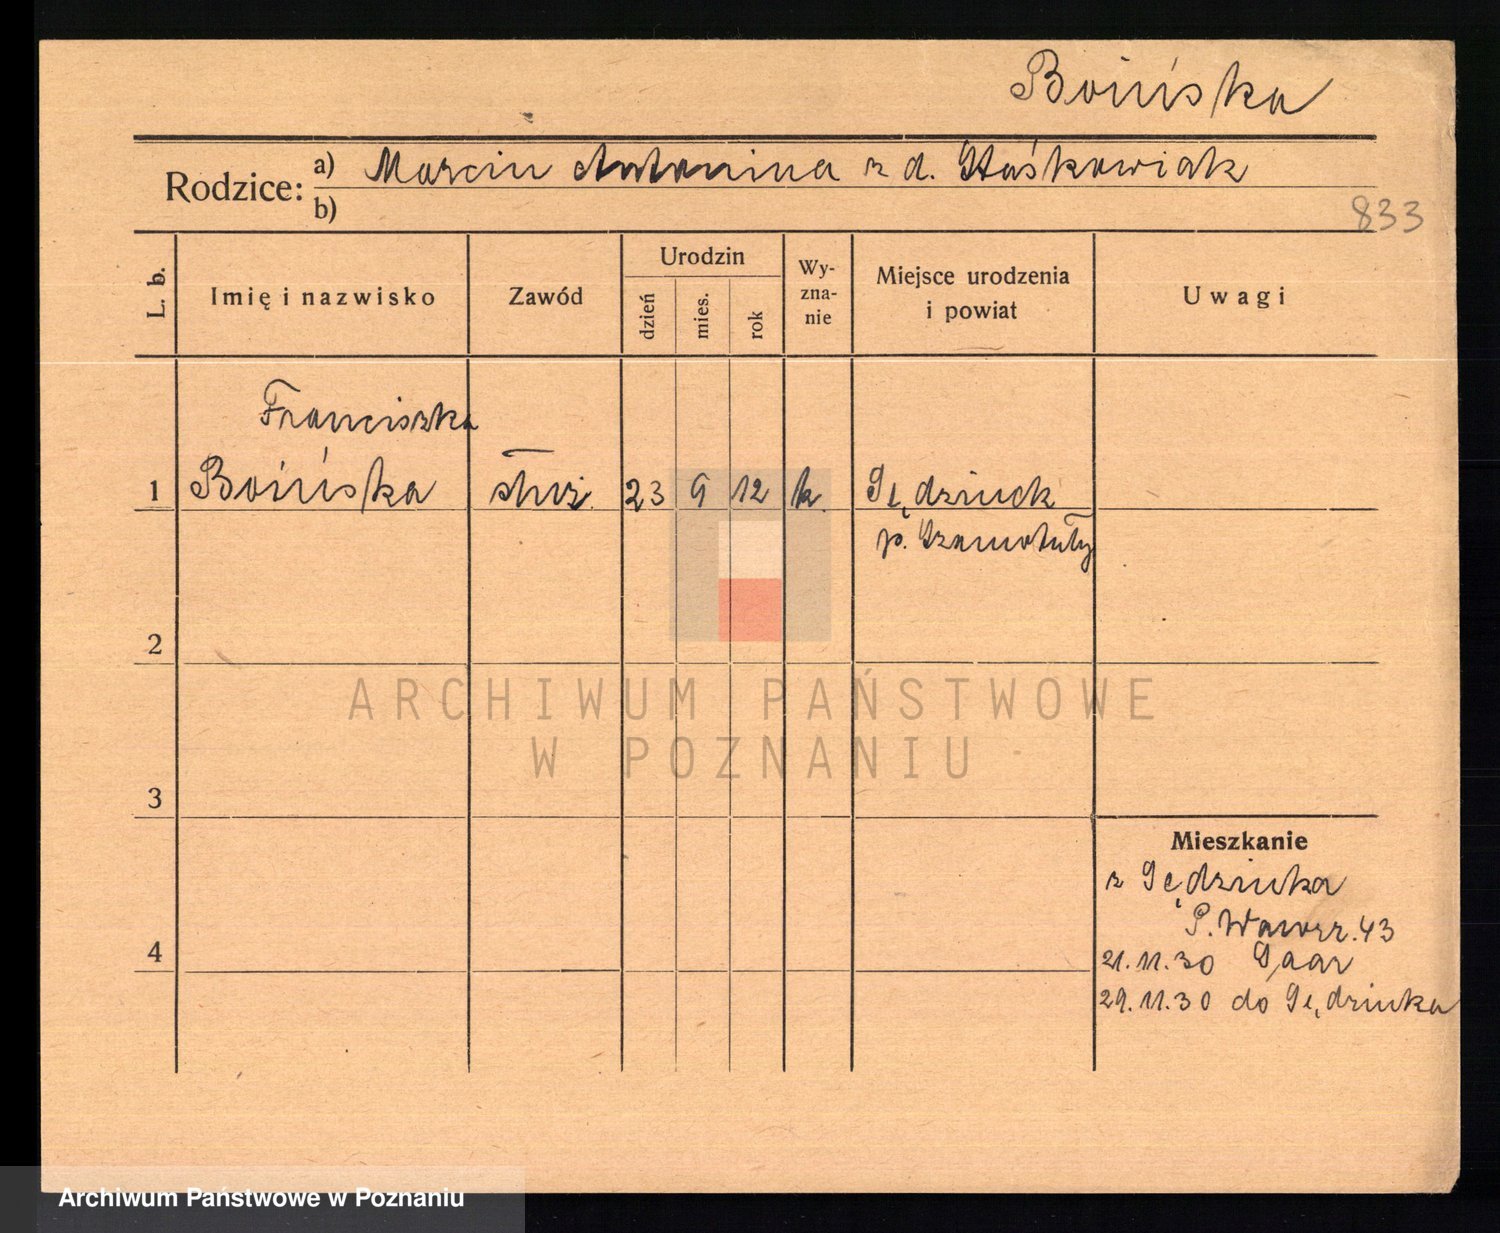 Boińska
Rodzice: a) Marcin Antonina z d. Staśkowiak
b)
833
L. b.
Imię i nazwisko
Zawód
Urodzin
dzień
mies.
rok
Wy-
zna-
nie
Miejsce urodzenia
i powiat
Uwagi
Franciszka
1 Boińska służ. 23 9 12 k. Gędziuck
p. Szamotuły
2
3
4
Mieszkanie
z Gędziuka
P. Wawrz. 43
21.11.30
29.11.30 do Gędziuka
ARCHIWUM PAŃSTWOWE
W POZNANIU
Archiwum Państwowe w Poznaniu